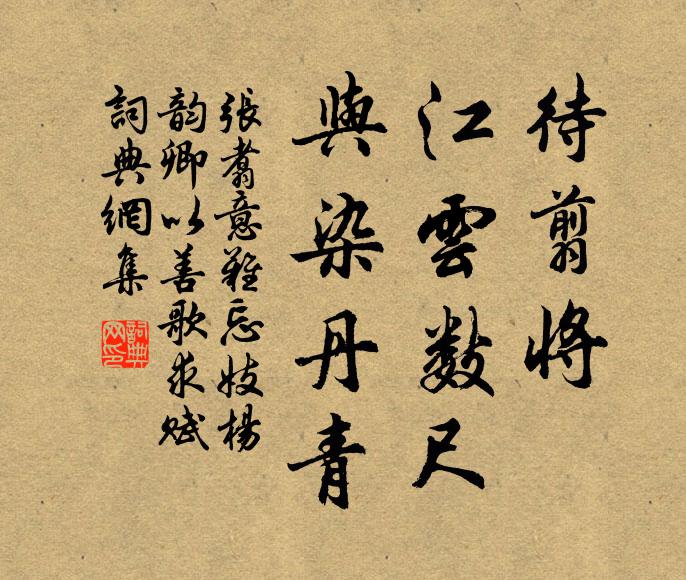 待翦將
江雲數尺
與染丹青
張翥意難忘妓楊
韵卿以善歌求賦
詞典網集
詞典
网印